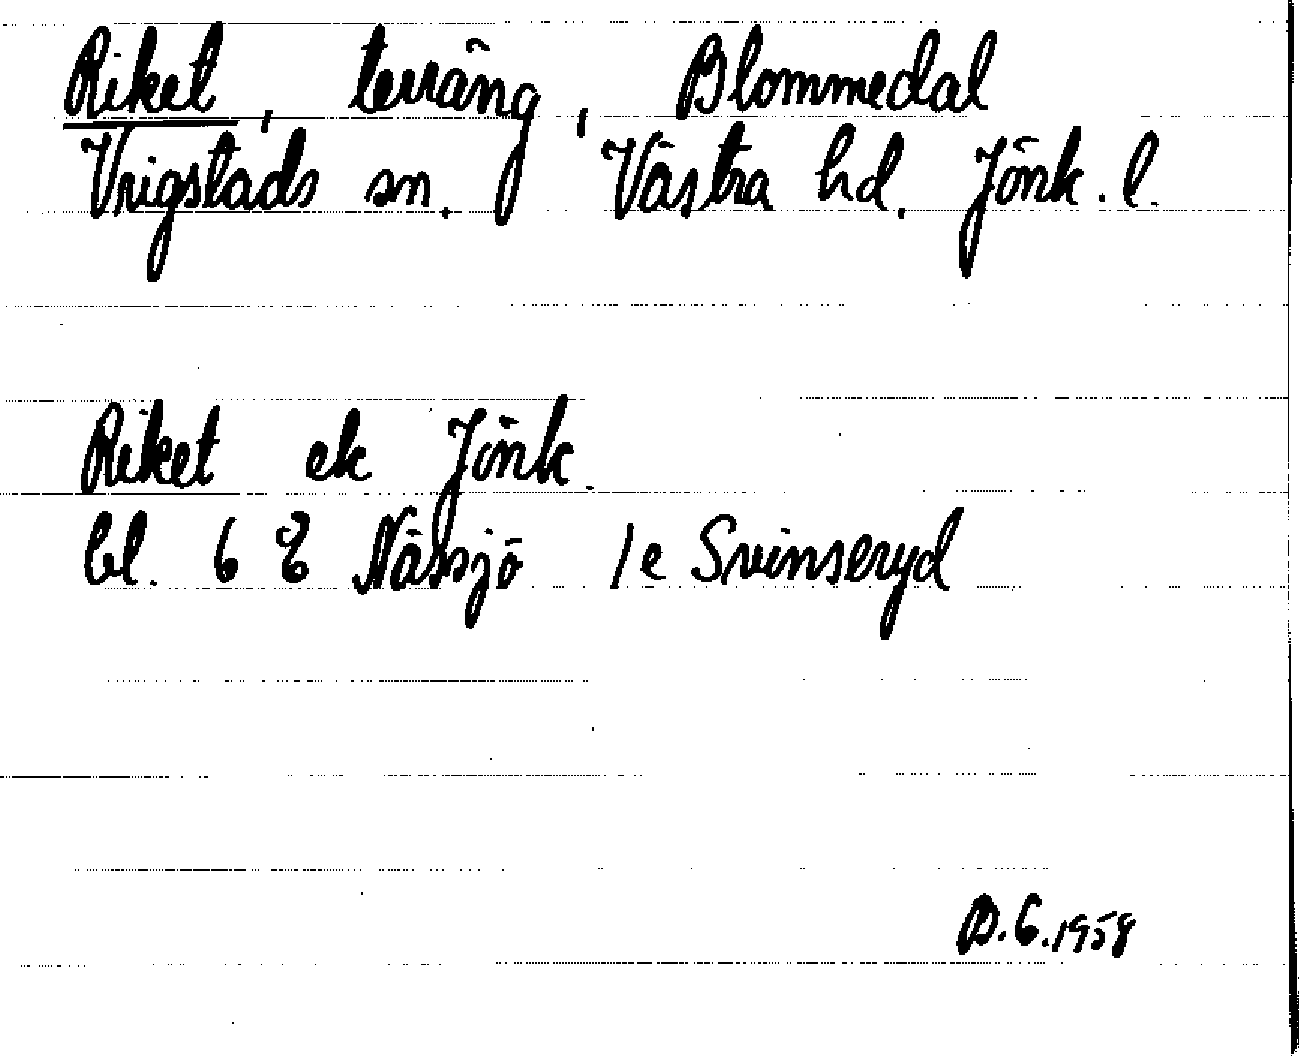 Riket, terräng, Blommedal
Vrigstads sn. Västra hd. Jönk. l.
Riket ek Jönk.
bl. 6 E Nässjö 1e Svinseryd
1958